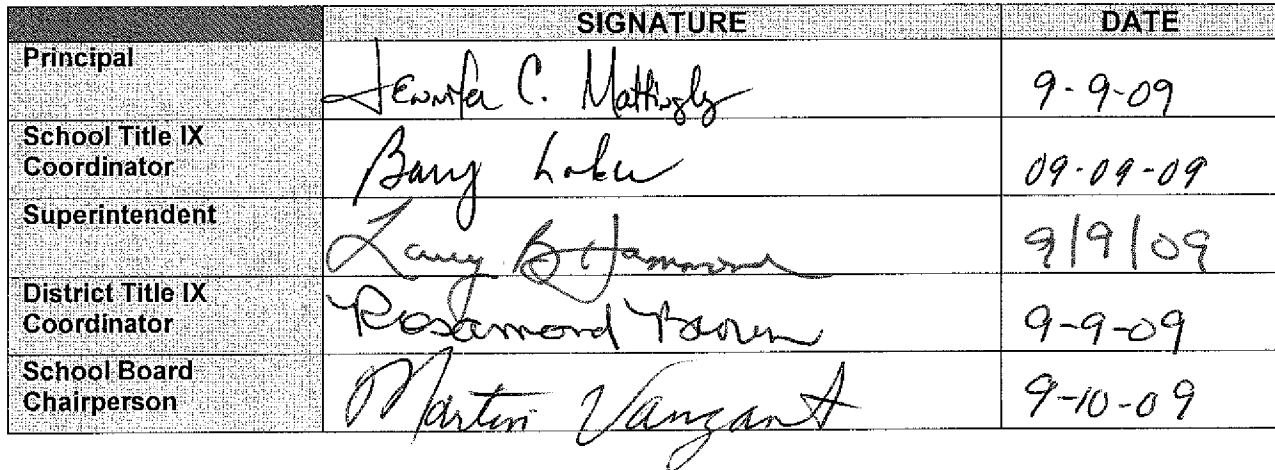 SIGNATURE DATE
Principal Jennifer C. Mattingly 9-9-09
School Title IX
Coordinator Barry 09-09-09
Superintendent Larry B Hammond 9/9/09
District Title IX
Coordinator Rosamond Brown 9-9-09
School Board
Chairperson Martin Vanzant 9-10-09